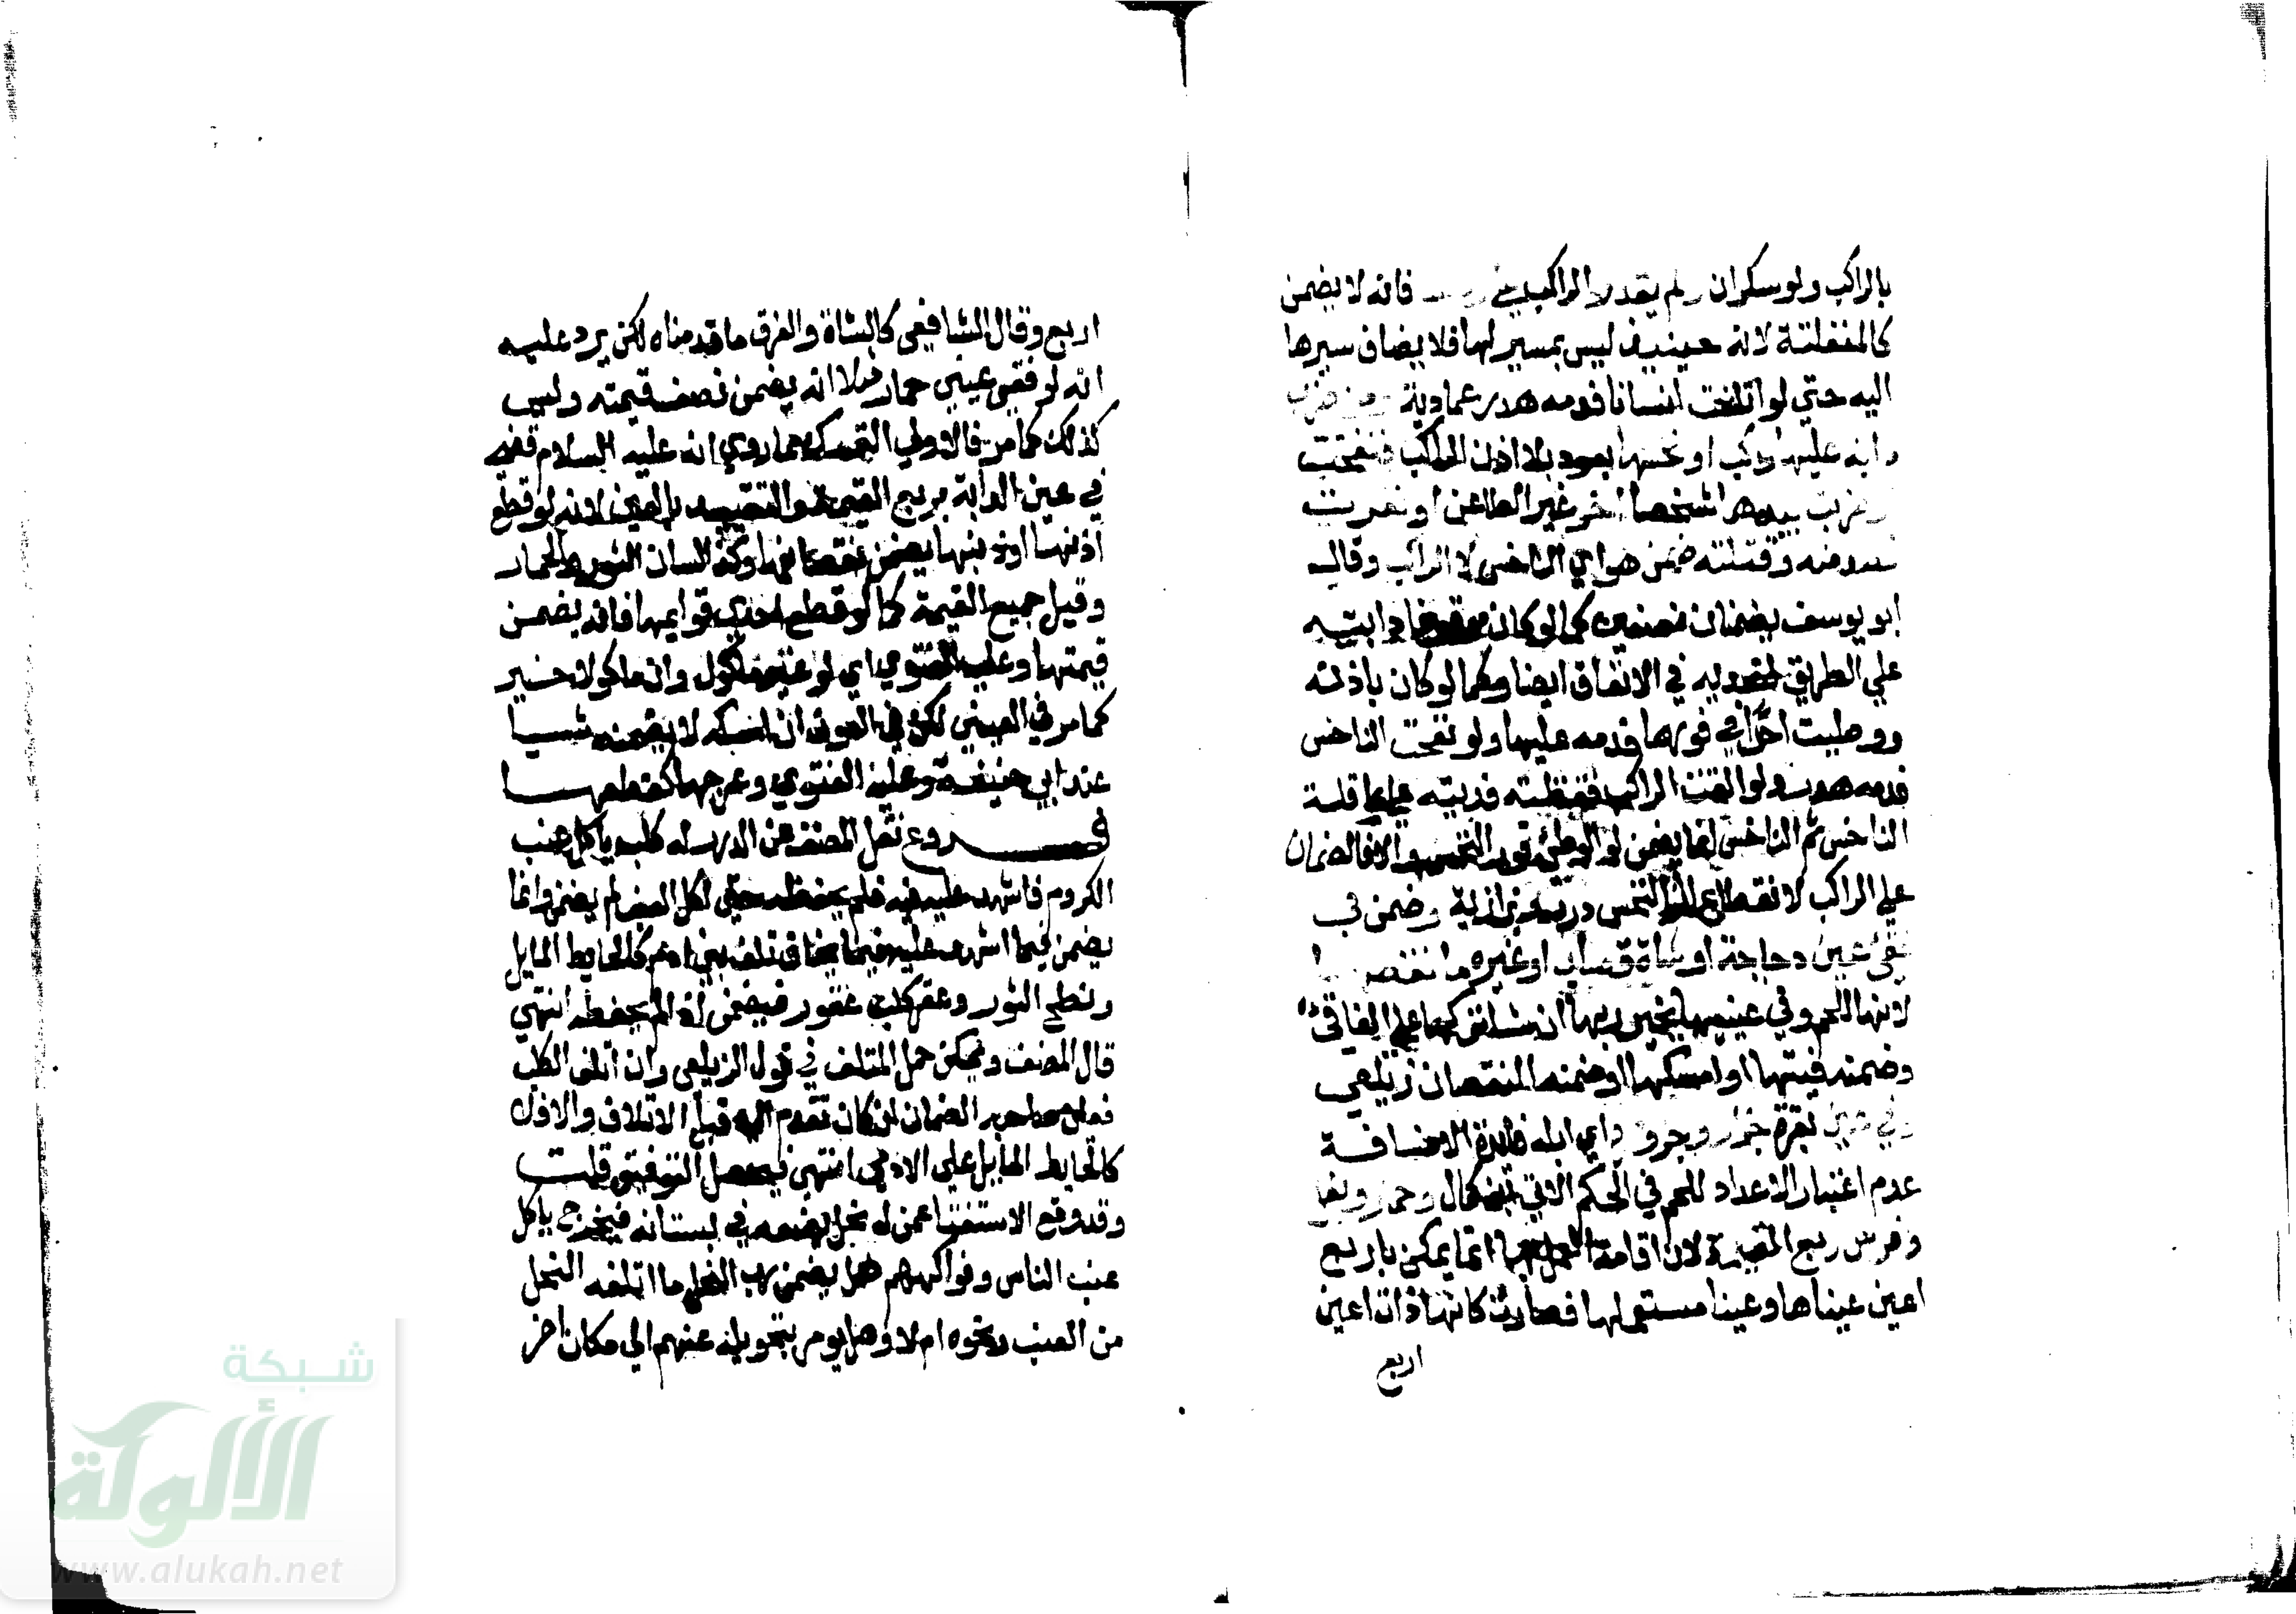 بالراكب ولو سكران ولم يقدر الراكب على فانه لا يضمن
كالمنفلتة لانه حينيذ ليس بمسير لها فلا يضاف سيرها
اليه حتي لو اتلفت انسانا فدمه هدر عمادية ضرب
دابة عليها راكب او نخسها بعود بلا اذن الراكب فنفحت
او ضربت بيدها شخصا اخر غير الطاعن او نفرت
فصدمته وقتلته ضمن هو اي الناخس لا الراكب وقال
ابو يوسف يضمنان نصفين كما لو كان موقفا دابته
علي الطريق لتعديه في الايقاف ايضا وكما لو كان باذنه
ووطيت احدا في فورها فدمه عليهما ولو نفحت الناخس
فدمه هدر ولو القت الراكب فقتلته فديته علي عاقلة
الناخس ثم الناخس انما يضمن لو الوطئ فور النخس والا فالضمان
علي الراكب لانقطاع اثر النخس درر وبزازية وضمن في
فقئ عين دجاجة او شاة قصاب او غيره ما نقصها
لانها للحم وفي عينيها يخير ربها ان شا تركها علي الفاقئ
وضمنه قيمتها او امسكها وضمنه النقصان زيلعي
وفي عين بقرة جزار وجزور اي ابله فايدة الاضافة
عدم اعتبار الاعداد للحم في الحكم الاتي وحمار وبغل
وفرس ربع القيمة لان اقامة العمل بها انما يمكن باربع
اعين عيناها وعينا مستعملها فصارت كانها ذات اعين
اربع
اربع وقال الشافعي كالشاة والفرق ما قدمناه لكن يرد عليه
انه لو فقئ عيني حمار مثلا انه يضمن نصف قيمته وليس
كذلك كما مر فالاولي التمسك بما روي انه عليه السلام قضي
في عين الدابة بربع القيمة والتقييد بالعين لانه لو قطع
اذنها او ذنبها يضمن نقصانها وكذا لسان الثور والحمار
وقيل جميع القيمة كما لو قطع احدي قوايمها فانه يضمن
قيمتها وعليه الفتوي اي لو غير ماكول وان ماكولا خير
كما مر في العينين لكن في العيون ان امسكه لا يضمنه شيا
عند ابي حنيفة وعليه الفتوي وعرجها كقطعها
فروع نقل المصنف عن الدرر له كلب ياكل عنب
الكروم فاشهد عليه فيه فلم يحفظه حتي اكل العنب لم يضمن وانما
يضمن فيما اشهد عليه فيما يخاف تلف بني ادم كالحايط المايل
ونطح الثور وعقر كلب عقور فيضمن اذا لم يحفظه انتهي
قال المصنف ويمكن حمل المتلف في قول الزيلعي وان اتلف الكلب
فعلي صاحبه الضمان ان كان تقدم اليه قبل الاتلاف والا فلا
كالحايط المايل علي الادمي انتهي فيحصل التوفيق قلت
وقد وقع الاستفتا عمن له نحل يضعه في بستانه فيخرج ياكل
عنب الناس وفواكههم هل يضمن رب النحل ما اتلفه النحل
من العنب ونحوه ام لا وهل يومر بتحويله عنهم الي مكان اخر
شبكة
الألوكة
www.alukah.net